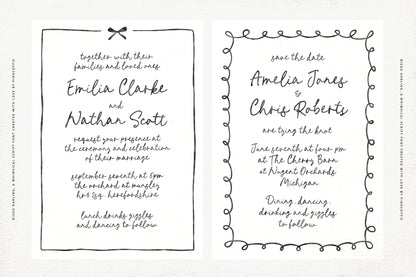 together with their
families and loved ones
Emilia Clarke
and
Nathan Scott
request your presence at
the ceremony and celebration
of their marriage
september seventh at 5pm
the orchard at munsley
hr8 2sg. herefordshire
lunch drinks giggles
and dancing to follow
save the date
Amelia Jones
&
Chris Roberts
are tying the knot
June seventh at four pm
at The Cherry Barn
at Nugent Orchards
Michigan
Dining, dancing,
drinking and giggles
to follow